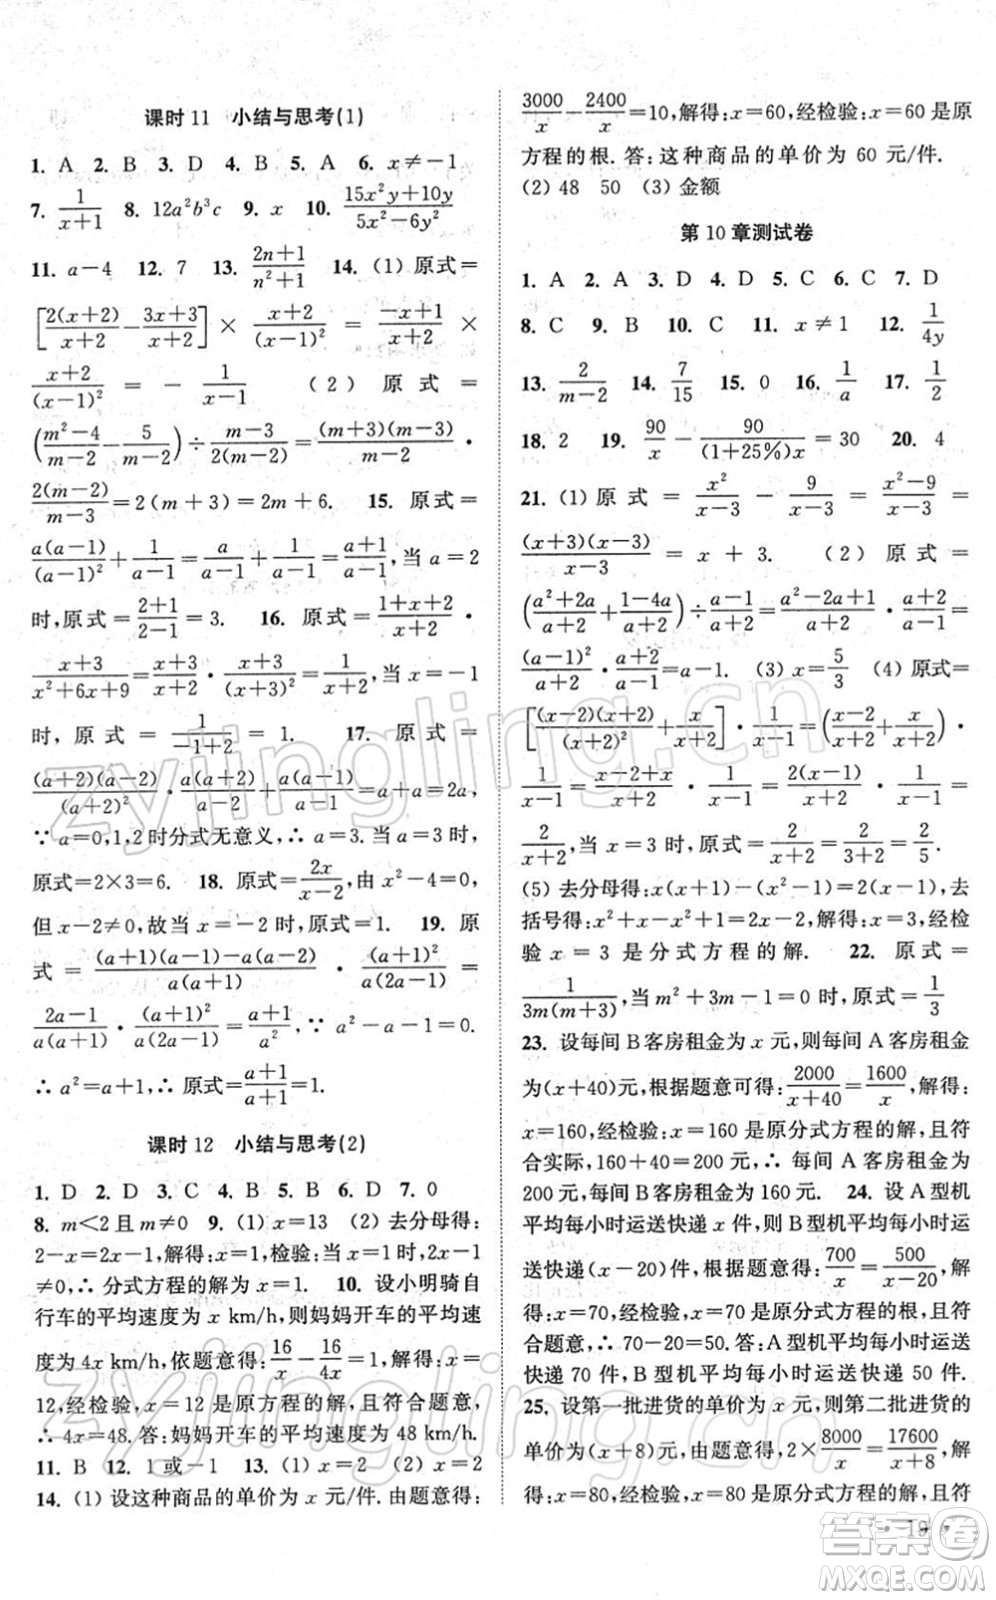 课时 11　小结与思考(1)
1. A　2. B　3. D　4. B　5. A　6. x≠－1
7. 1/(x+1)　8. 12a²b³c　9. x　10. (15x²y+10y)/(5x²－6y²)
11. a－4　12. 7　13. (2n+1)/(n²+1)　14. (1) 原式＝
[2(x+2)/(x+2)－(3x+3)/(x+2)] × (x+2)/(x－1)² ＝ (－x+1)/(x+2) ×
(x+2)/(x－1)² ＝ －1/(x－1)　(2) 原式＝
((m²－4)/(m－2)－5/(m－2))÷(m－3)/(2(m－2))＝(m+3)(m－3)/(m－2)·
2(m－2)/(m－3)＝2(m+3)＝2m+6.　15. 原式＝
a(a－1)/(a－1)²+1/(a－1)＝a/(a－1)+1/(a－1)＝(a+1)/(a－1),当 a＝2
时,原式＝(2+1)/(2－1)＝3.　16. 原式＝(1+x+2)/(x+2)·
(x+3)/(x²+6x+9)＝(x+3)/(x+2)·(x+3)/(x+3)²＝1/(x+2),当 x＝－1
时,原式＝1/(－1+2)＝1.　17. 原式＝
(a+2)(a－2)/(a+2)²·a(a+2)/(a－2)+a(a+2)/(a+2)＝a+a＝2a,
∵ a＝0,1,2 时分式无意义,∴ a＝3. 当 a＝3 时,
原式＝2×3＝6.　18. 原式＝2x/(x－2),由 x²－4＝0,
但 x－2≠0,故当 x＝－2 时,原式＝1.　19. 原
式＝((a+1)(a－1)－a(a－2))/(a(a+1))·(a+1)²/(a(2a－1))＝
(2a－1)/(a(a+1))·(a+1)²/(a(2a－1))＝(a+1)/a²,∵ a²－a－1＝0.
∴ a²＝a+1,∴ 原式＝(a+1)/(a+1)＝1.
课时 12　小结与思考(2)
1. D　2. D　3. C　4. B　5. D　6. D　7. 0
8. m＜2 且 m≠0　9. (1) x＝13　(2) 去分母得:
2－x＝x,解得:x＝1,检验:当 x＝1 时,x－2≠
0,∴ 分式方程的解为 x＝1.　10. 设小明骑自
行车的平均速度为 x km/h,则妈妈开车的平均速
度为 4x km/h,依题意得:16/x－16/4x＝1,解得:x＝
12,经检验,x＝12 是原方程的解,且符合题意,
∴ 4x＝48. 答:妈妈开车的平均速度为 48 km/h.
11. B　12. 1 或－1　13. (1) x＝2　(2) x＝2
14. (1) 设这种商品的单价为 x 元/件. 由题意得:
3000/x－2400/x＝10,解得:x＝60,经检验:x＝60 是原
方程的根. 答:这种商品的单价为 60 元/件.
(2) 48　50　(3) 金额
第 10 章测试卷
1. A　2. A　3. D　4. D　5. C　6. C　7. D
8. C　9. B　10. C　11. x≠1　12. 1/4y
13. 2/(m－2)　14. 7/15　15. 0　16. 1/a　17. 1/2
18. 2　19. 90/x－90/((1+25%)x)＝30　20. 4
21. (1) 原式＝x²/(x－3)－9/(x－3)＝(x²－9)/(x－3)＝
(x+3)(x－3)/(x－3)＝x+3.　(2) 原式＝
((a²+2a)/(a+2)+(1－4a)/(a+2))÷(a－1)/(a+2)＝(a²－2a+1)/(a+2)·(a+2)/(a－1)＝
(a－1)²/(a+2)·(a+2)/(a－1)＝a－1.　(3) x＝5/3　(4) 原式＝
[(x－2)(x+2)/(x+2)²+x/(x+2)]·1/(x－1)＝((x－2)/(x+2)+x/(x+2))·
1/(x－1)＝(x－2+x)/(x+2)·1/(x－1)＝2(x－1)/(x+2)·1/(x－1)＝
2/(x+2),当 x＝3 时,原式＝2/(x+2)＝2/(3+2)＝2/5.
(5) 去分母得:x(x+1)－(x²－1)＝2(x－1),去
括号得:x²+x－x²+1＝2x－2,解得:x＝3,经检
验 x＝3 是分式方程的解.　22. 原式＝
1/(3m(m+3)),当 m²+3m－1＝0 时,原式＝1/3
23. 设每间 B 客房租金为 x 元,则每间 A 客房租金
为(x+40)元,根据题意可得:2000/(x+40)＝1600/x,解得:
x＝160,经检验:x＝160 是原分式方程的解,且符
合实际,160+40＝200 元,∴ 每间 A 客房租金为
200 元,每间 B 客房租金为 160 元.　24. 设 A 型机
平均每小时运送快递 x 件,则 B 型机平均每小时运
送快递(x－20)件,根据题意得:700/x＝500/(x－20),
解得:x＝70,经检验,x＝70 是原分式方程的根,且符
合题意,∴ 70－20＝50. 答:A 型机平均每小时运送
快递 70 件,B 型机平均每小时运送快递 50 件.
25. 设第一批进货的单价为 x 元,则第二批进货的
单价为(x+8)元,由题意得,2×8000/x＝17600/(x+8),解
得:x＝80,经检验,x＝80 是原分式方程的解,且符
19
zyjingling.cn
zyjingling.cn
答案圈
MXQE.COM